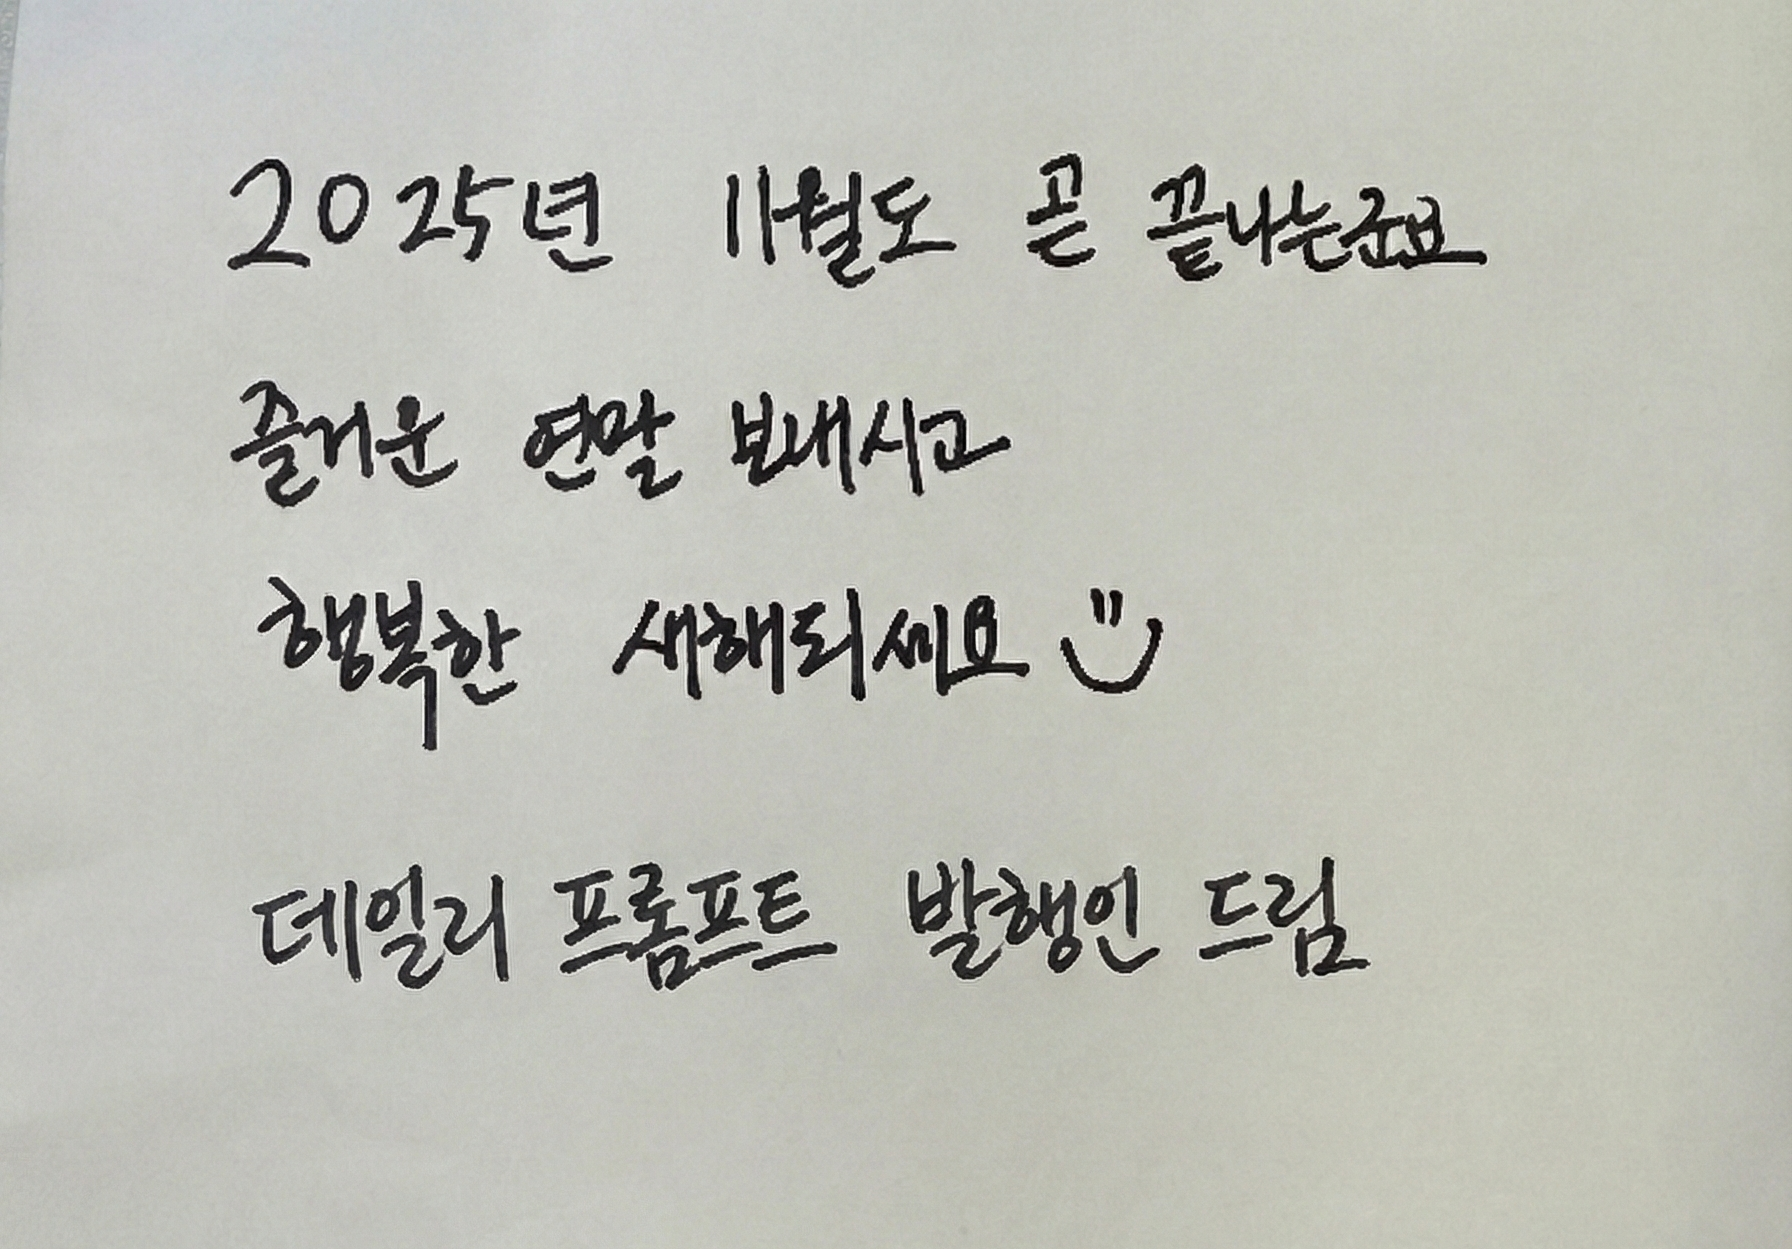 2025년 11월도 곧 끝나는군요
즐거운 연말 보내시고
행복한 새해되세요
데일리 프롬프트 발행인 드림